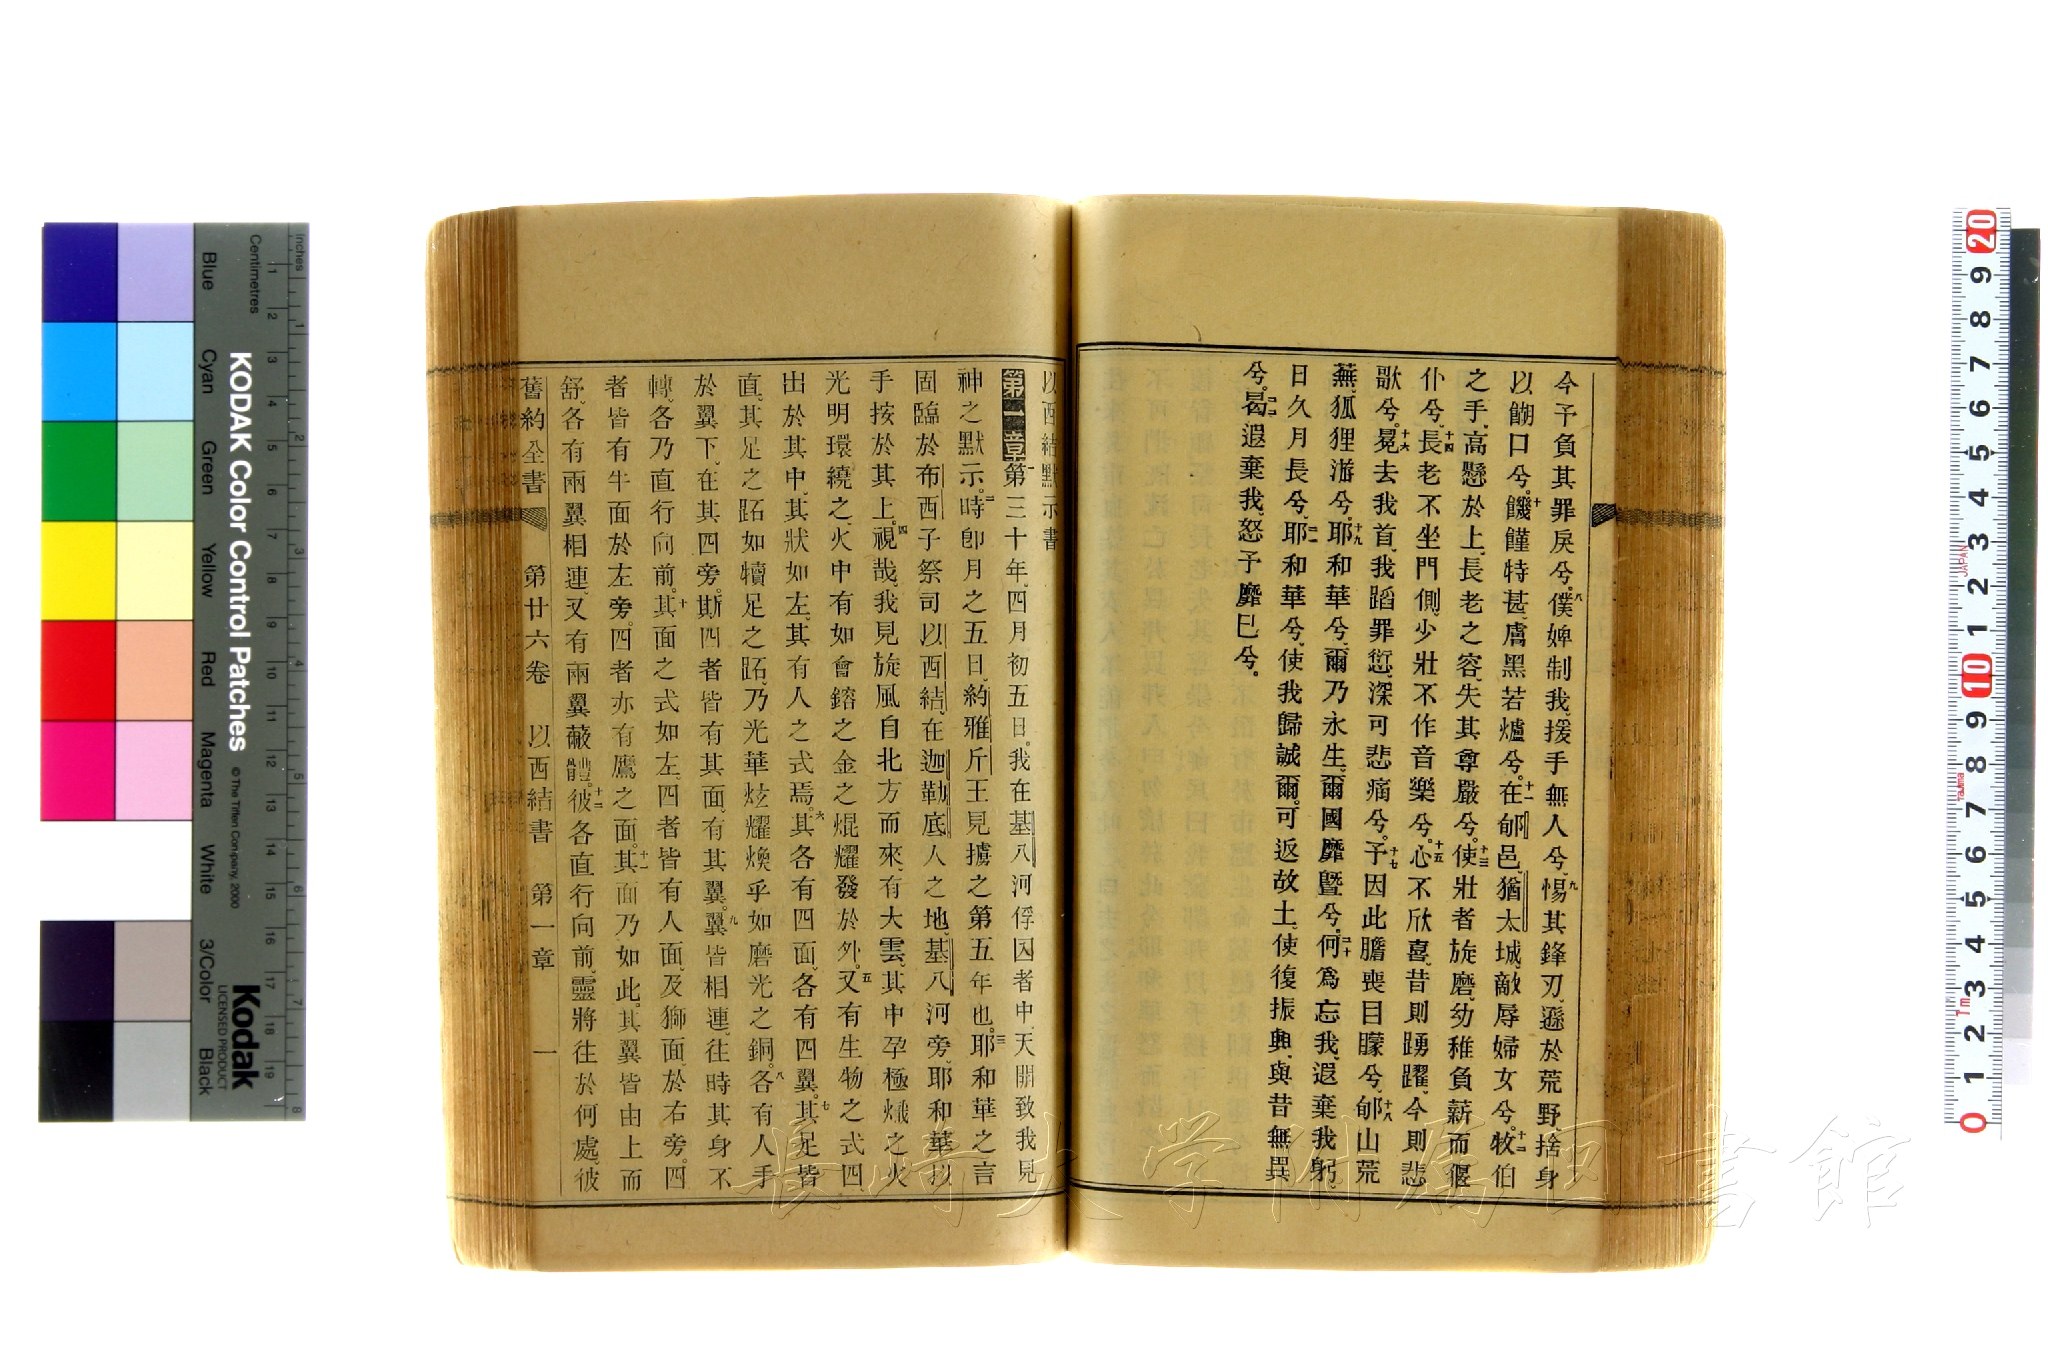 今予負其罪戾兮八僕婢制我援手無人兮九惕其鋒刃遜於荒野捨身
以餬口兮十饑饉特甚膚黑若爐兮十一在郇邑猶太城敵辱婦女兮十二牧伯
之手高懸於上長老之容失其尊嚴兮十三使壯者旋磨幼稚負薪而偃
仆兮十四長老不坐門側少壯不作音樂兮十五心不欣喜昔則踴躍今則悲
歌兮十六冕去我首我蹈罪愆深可悲痛兮十七予因此膽喪目矇兮十八郇山荒
蕪狐狸游兮十九耶和華兮爾乃永生爾國靡曁兮二十何爲忘我遐棄我躬
日久月長兮二一耶和華兮使我歸誠爾可返故土使復振興與昔無異
兮二二曷遐棄我怒予靡已兮
以西結默示書
第一章一第三十年四月初五日我在基八河俘囚者中天開致我見
神之默示二時卽月之五日約雅斤王見擄之第五年也三耶和華之言
固臨於布西子祭司以西結在迦勒底人之地基八河旁耶和華扶
手按於其上四視哉我見旋風自北方而來有大雲其中孕極熾之火
光明環繞之火中有如會鎔之金之焜耀發於外五又有生物之式四
出於其中其狀如左其有人之式焉六其各有四面各有四翼七其足皆
直其足之跖如犢足之跖乃光華炫耀煥乎如磨光之銅八各有人手
於翼下在其四旁斯四者皆有其面有其翼九翼皆相連往時其身不
轉各乃直行向前十其面之式如左四者皆有人面及獅面於右旁四
者皆有牛面於左旁四者亦有鷹之面十一其面乃如此其翼皆由上而
舒各有兩翼相連又有兩翼蔽體十二彼各直行向前靈將往於何處彼
舊約全書 第廿六卷 以西結書 第一章 一
KODAK Color Control Patches © The Tiffen Company, 2000
Kodak
LICENSED PRODUCT
Inches
Centimetres
Blue Cyan Green Yellow Red Magenta White 3/Color Black
長崎大学附属図書館